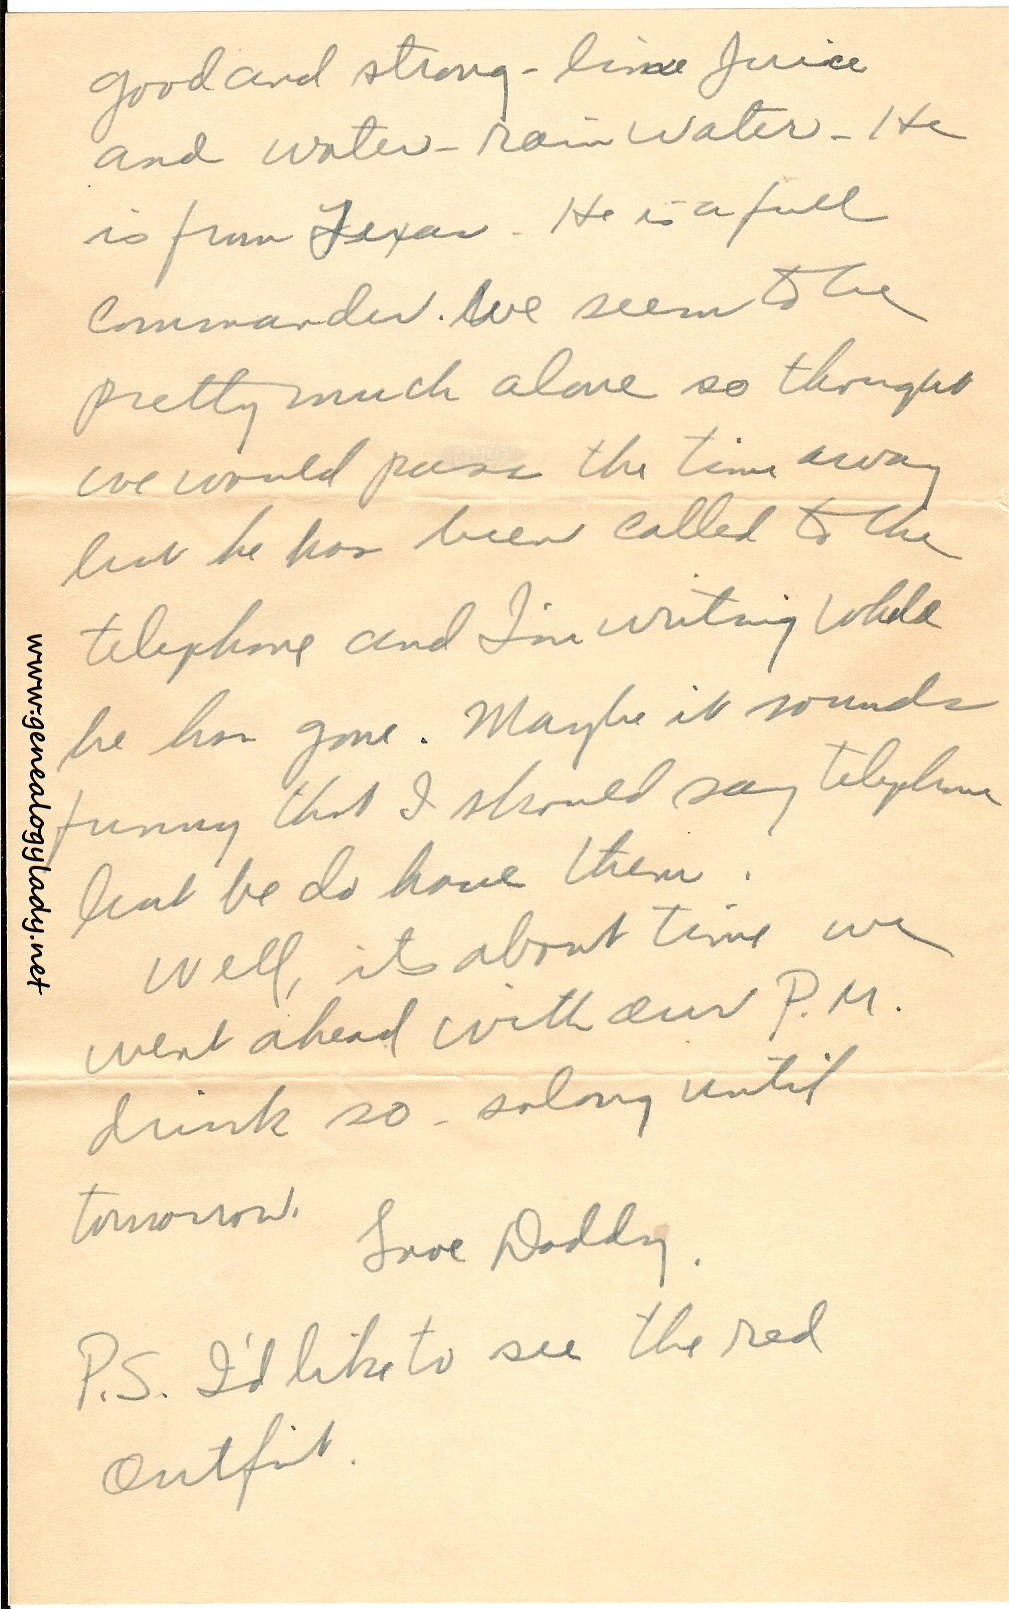 good and strong - lime Juice
and water - rain water - He
is from Texas. He is a full
commander. We seem to be
pretty much alone so thought
we would pass the time away
but he has been called to the
telephone and I'm writing while
he has gone. Maybe it sounds
funny that I should say telephone
but be do have them.
Well, its about time we
went ahead with our P.M.
drink so - solong until
tomorrow.
Love Daddy.
P.S. I'd like to see the red
Outfit.
www.genealogylady.net